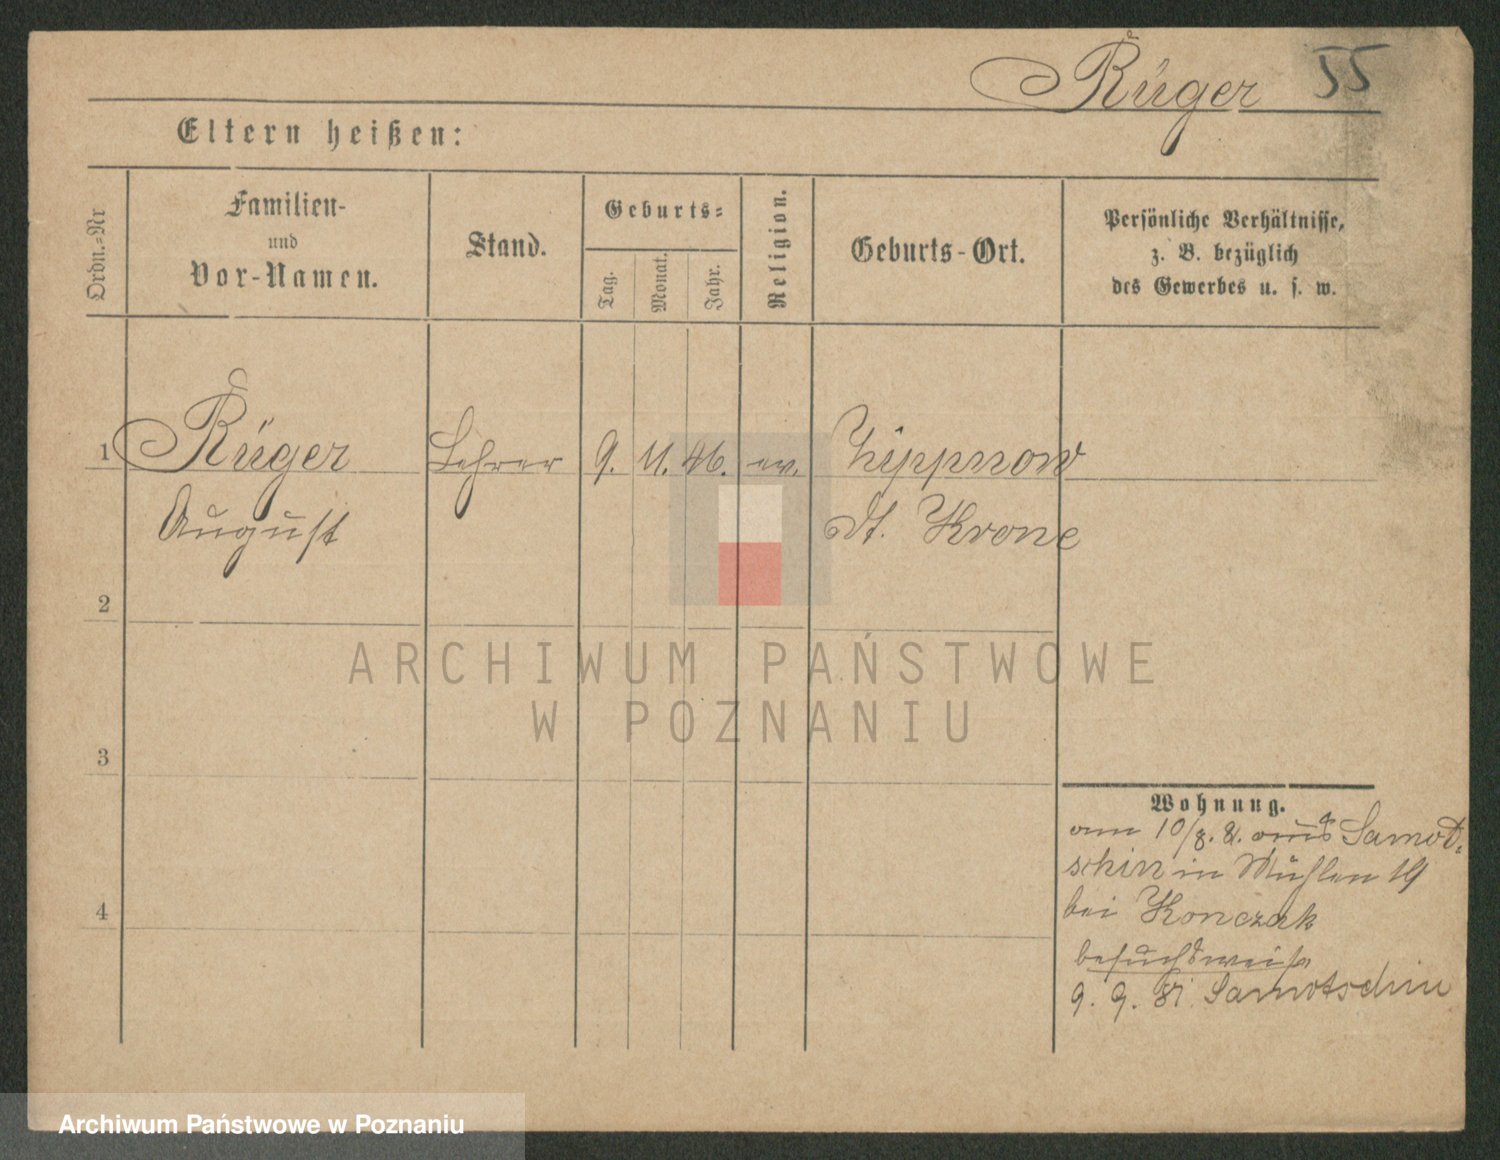 Rüger 55
Eltern heißen:
Ordn.=Nr
Familien-
und
Vor-Namen.
Stand.
Geburts=
Tag.
Monat.
Jahr.
Religion.
Geburts-Ort.
Persönliche Verhältnisse,
z. B. bezüglich
des Gewerbes u. s. w.
1 Rüger Lehrer 9. 11. 46. ev. Zippnow
August dt. Krone
2
3
4
Wohnung.
am 10/8. 81. aus Samot=
schin in Mühlen 19
bei Konczak
besuchsweise
9. 9. 81. Samotschin
ARCHIWUM PAŃSTWOWE
W POZNANIU
Archiwum Państwowe w Poznaniu